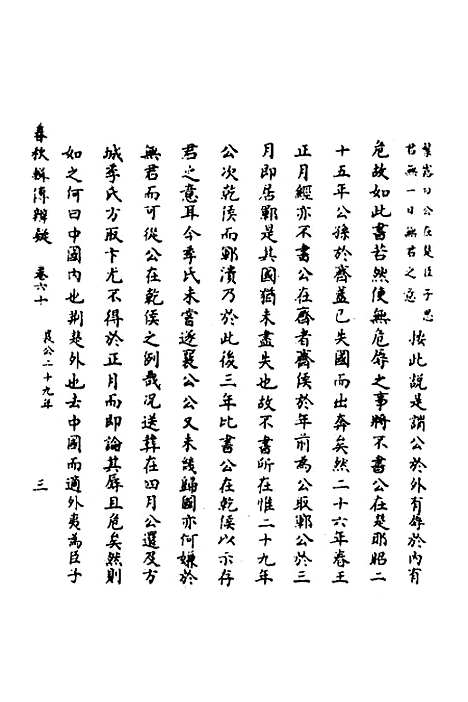 葉氏曰公在楚臣子思
君無一日無君之意
按此說是謂公於外有辱於內有
危故如此書若然使無危辱之事將不書公在楚耶昭二
十五年公孫於齊蓋已失國而出奔矣然二十六年春王
正月經亦不書公在齊者齊侯於年前為公取鄆公於三
月即居鄆是其國猶未盡失也故不書所在惟二十九年
公次乾侯而鄆潰乃於此後三年比書公在乾侯以示存
君之意耳今季氏未嘗逐襄公公又未嘗歸國亦何嫌於
無君而可從公在乾侯之例哉況送葬在四月公還及方
城季氏方取卞尤不得於正月而即論其辱且危矣然則
如之何曰中國內也荆楚外也去中國而適外夷為臣子
春秋輯傳辨疑 卷六十 襄公二十九年 三